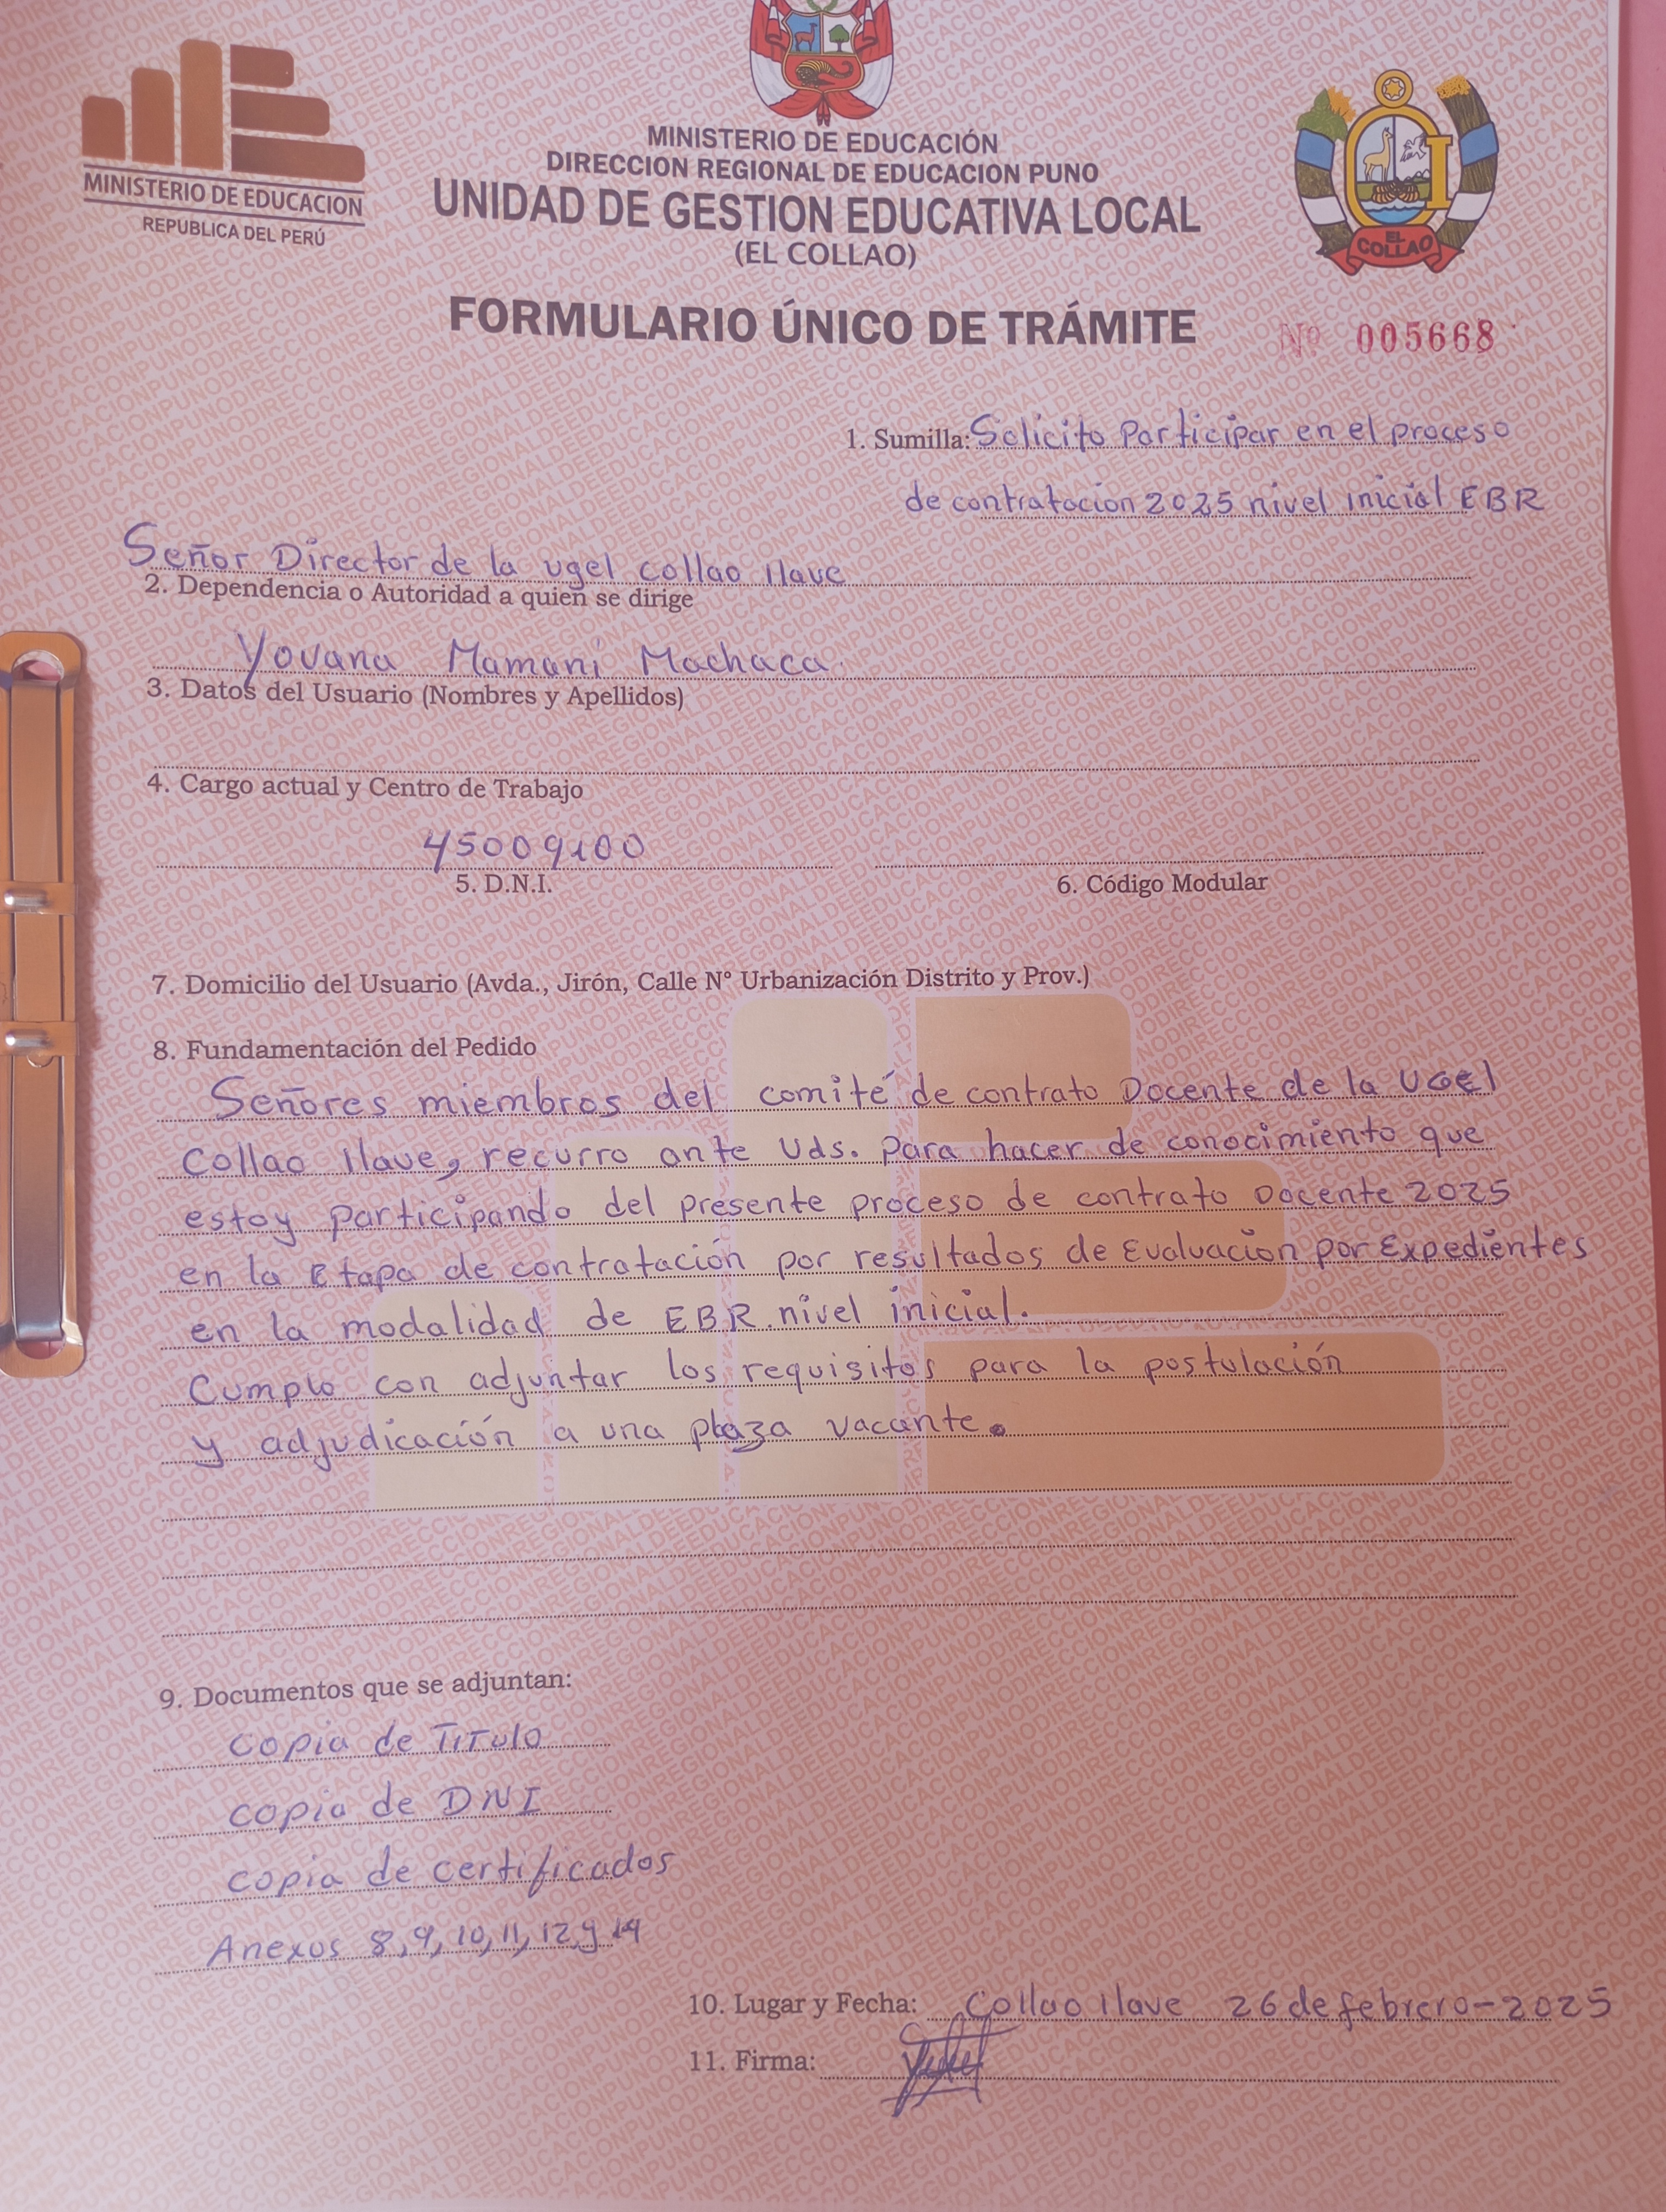 MINISTERIO DE EDUCACION
REPUBLICA DEL PERÚ
MINISTERIO DE EDUCACIÓN
DIRECCION REGIONAL DE EDUCACION PUNO
UNIDAD DE GESTION EDUCATIVA LOCAL
(EL COLLAO)
EL COLLAO
FORMULARIO ÚNICO DE TRÁMITE
Nº 005668
1. Sumilla: Solicito Participar en el proceso
de contratacion 2025 nivel inicial EBR
Señor Director de la ugel collao Ilave
2. Dependencia o Autoridad a quien se dirige
Yovana Mamani Machaca.
3. Datos del Usuario (Nombres y Apellidos)
4. Cargo actual y Centro de Trabajo
45009100
5. D.N.I.
6. Código Modular
7. Domicilio del Usuario (Avda., Jirón, Calle N° Urbanización Distrito y Prov.)
8. Fundamentación del Pedido
Señores miembros del comité de contrato Docente de la UGEl
Collao Ilave, recurro ante Uds. para hacer de conocimiento que
estoy participando del presente proceso de contrato Docente 2025
en la Etapa de contratación por resultados de Evaluación por Expedientes
en la modalidad de EBR nivel inicial.
Cumplo con adjuntar los requisitos para la postulación
y adjudicación a una plaza vacante.
9. Documentos que se adjuntan:
copia de TiTulo
copia de DNI
copia de certificados
Anexos 8, 9, 10, 11, 12, y 14
10. Lugar y Fecha: Collao Ilave 26 de febrero-2025
11. Firma: